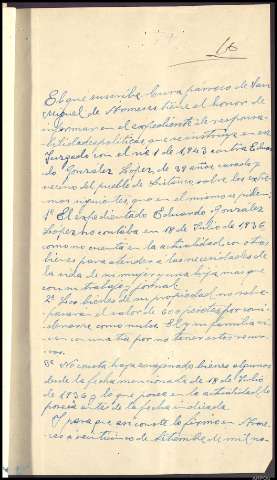 El que suscribe Cura párroco de San
Miguel de tiene el honor de
informar en el expediente de responsa-
bilidades políticas que se instruye en ese
Juzgado con el nº 1 de 1943 contra Eduar-
do Gonzalez Lopez, de 39 años, casado y
vecino del pueblo de sobre los extre-
mos siguientes que en el mismo se piden:
1º El expedientado Eduardo Gonzalez
Lopez no contaba en 18 de Julio de 1936
como no cuenta en la actualidad con otros
bienes para atender a las necesidades de
la vida de su mujer y una hija mas que
con su trabajo y jornal.
2º Los bienes de su propiedad no reba-
sarán el valor de pesetas por con-
siderarse como nulos. El y su familia vi-
ven con una tia por no tener estos
3º No consta haya enagenado bienes algunos
desde la fecha mencionada de 18 de Julio
de 1936 y lo que posee en la actualidad lo
poseía antes de la fecha indicada.
Y para que así conste lo firmo en
a veinticinco de Setiembre de mil no-